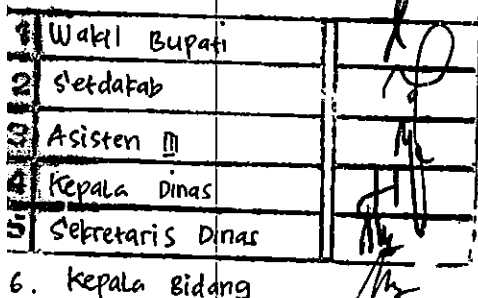 Wakil Bupati
Setdakab
Asisten III
Kepala Dinas
Sekretaris Dinas
6. Kepala Bidang